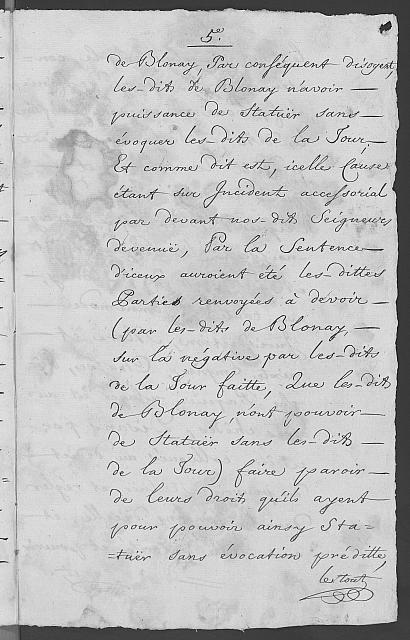 5e.
de Blonay, Par conséquent disoyent,
les-dits de Blonay n'avoir —
puissance de Statuër sans —
évoquer les-dits de la Tour;
Et comme dit est, icelle Cause
étant sur Incident accessorial
par devant nos-dits Seigneurs
devenuë, Par la Sentence —
d'iceux auroient été les-dittes
Parties renvoyées à devoir —
(par les-dits de Blonay, —
sur la négative par les-dits
de la Tour faitte, Que les-dits
de Blonay, n'ont pouvoir —
de Statuër sans les-dits —
de la Tour) faire paroir —
de leurs droits qu'ils ayent
pour pouvoir ainsy Sta=
=tuër sans évocation préditte,
le tout